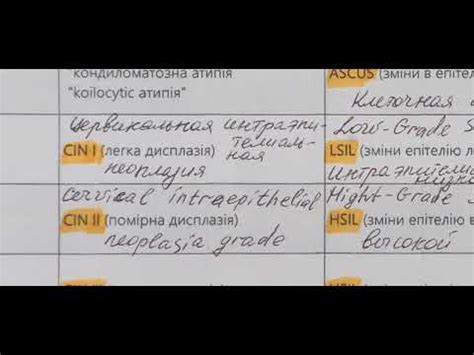 "кондиломатозна атипія
"koilocytic атипія"
ASCUS (зміни в епітелі
Клеточная
Цервикальная интраэпи-
телиаль-
ная
CIN I (легка дисплазія)
неоплазия
Low-Grade S
LSIL (зміни епітелію л
Cervical intraepithelial
CIN II (помірна дисплазія)
neoplasia grade
Hight-Grade
HSIL (зміни епітелію в
высокой